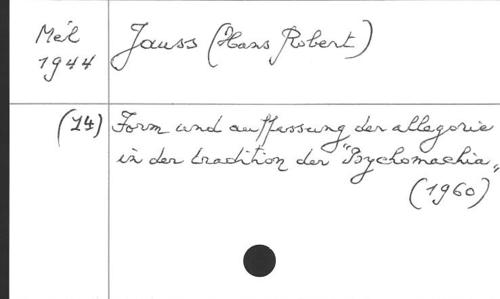 Mél Jauss (Hans Robert)
1944
(14) Form und auffassung der allegorie
in der tradition der "Psychomachia"
(1960)